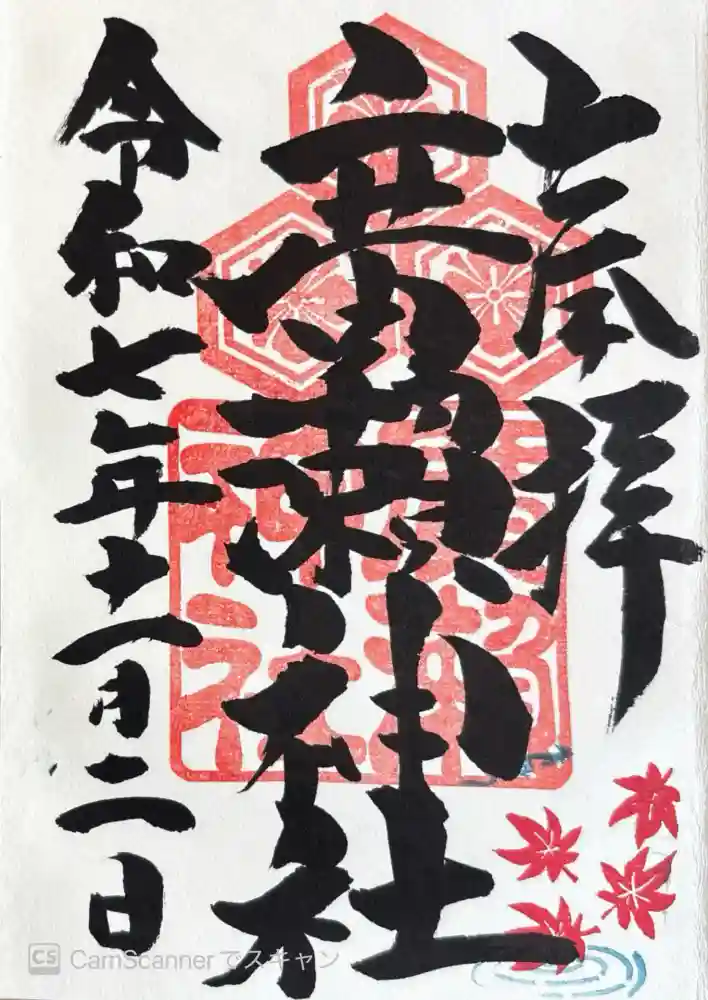 奉拝
廣瀬神社
令和七年十一月二日
神社
CS CamScannerでスキャン